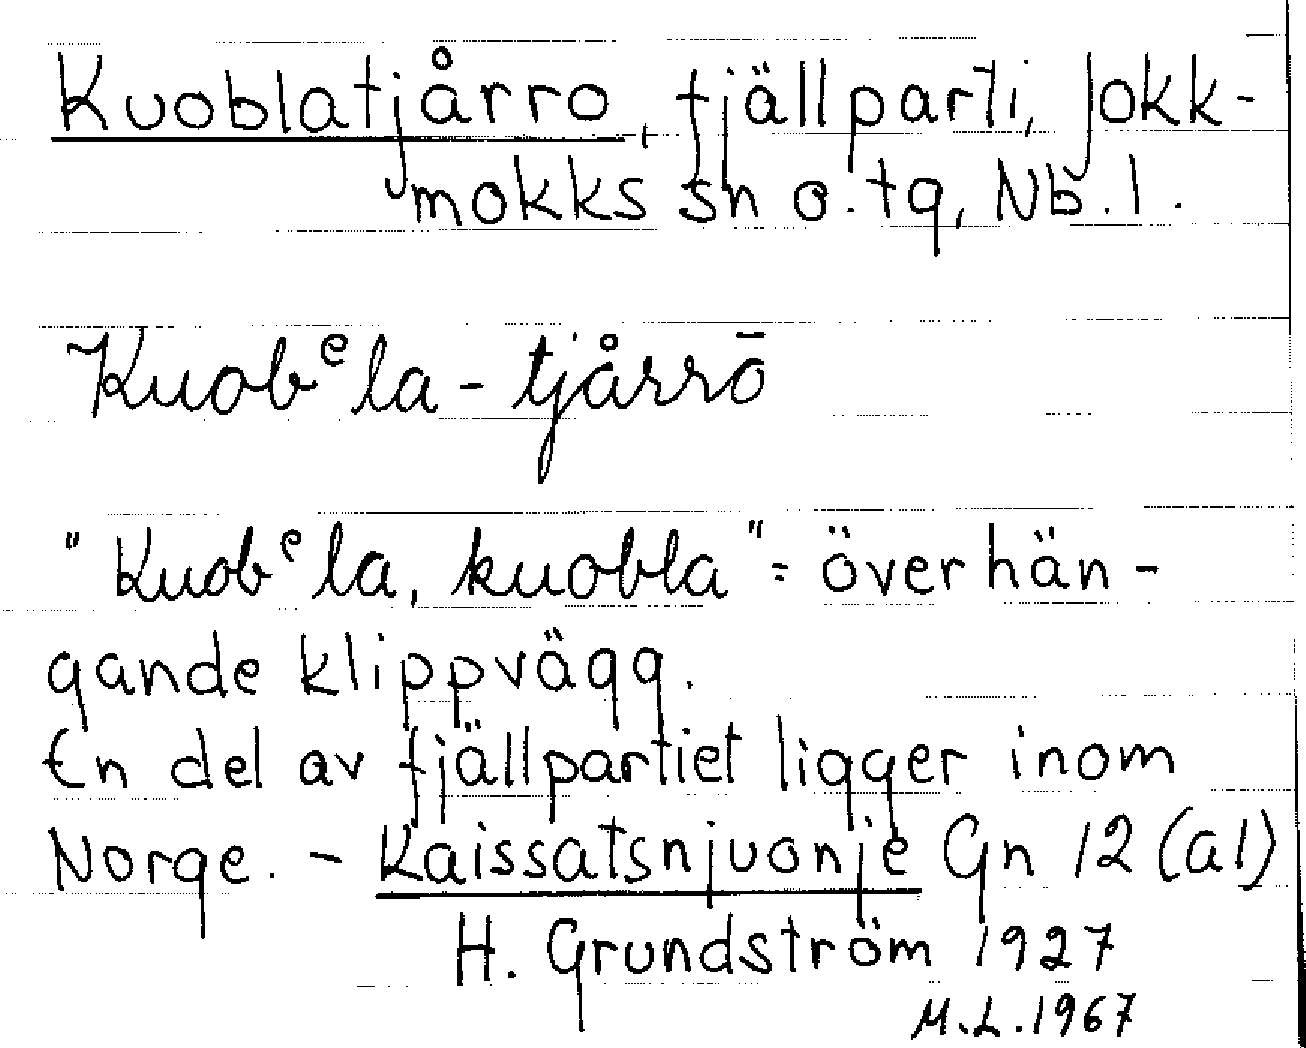 Kuoblatjårro, fjällparti, Jokk-
mokks sn o. tg, Nb. l.
Kuobᵉla-tjårrō
"Kuobᵉla, kuobla" = överhän-
gande klippvägg.
En del av fjällpartiet ligger inom
Norge. - Kaissatsnjuonje Gn 12 (a1)
H. Grundström 1927
M.L. 1967